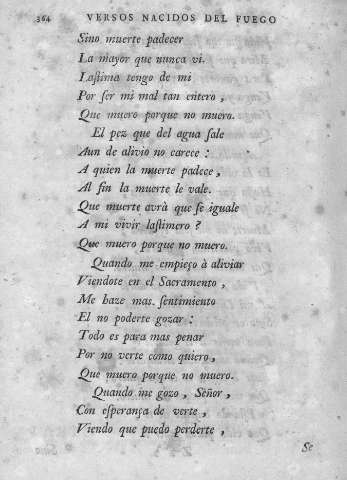 364 VERSOS NACIDOS DEL FUEGO
Sino muerte padecer
La mayor que nunca vi.
Laſtima tengo de mi
Por ſer mi mal tan entero,
Que muero porque no muero.
El pez que del agua ſale
Aun de alivio no carece:
A quien la muerte padece,
Al fin la muerte le vale.
Que muerte avrà que ſe iguale
A mi vivir laſtimero?
Que muero porque no muero.
Quando me empieço à aliviar
Viendote en el Sacramento,
Me haze mas. ſentimiento
El no poderte gozar:
Todo es para mas penar
Por no verte como quiero,
Que muero porque no muero.
Quando me gozo, Señor,
Con eſperança de verte,
Viendo que puedo perderte,
Se